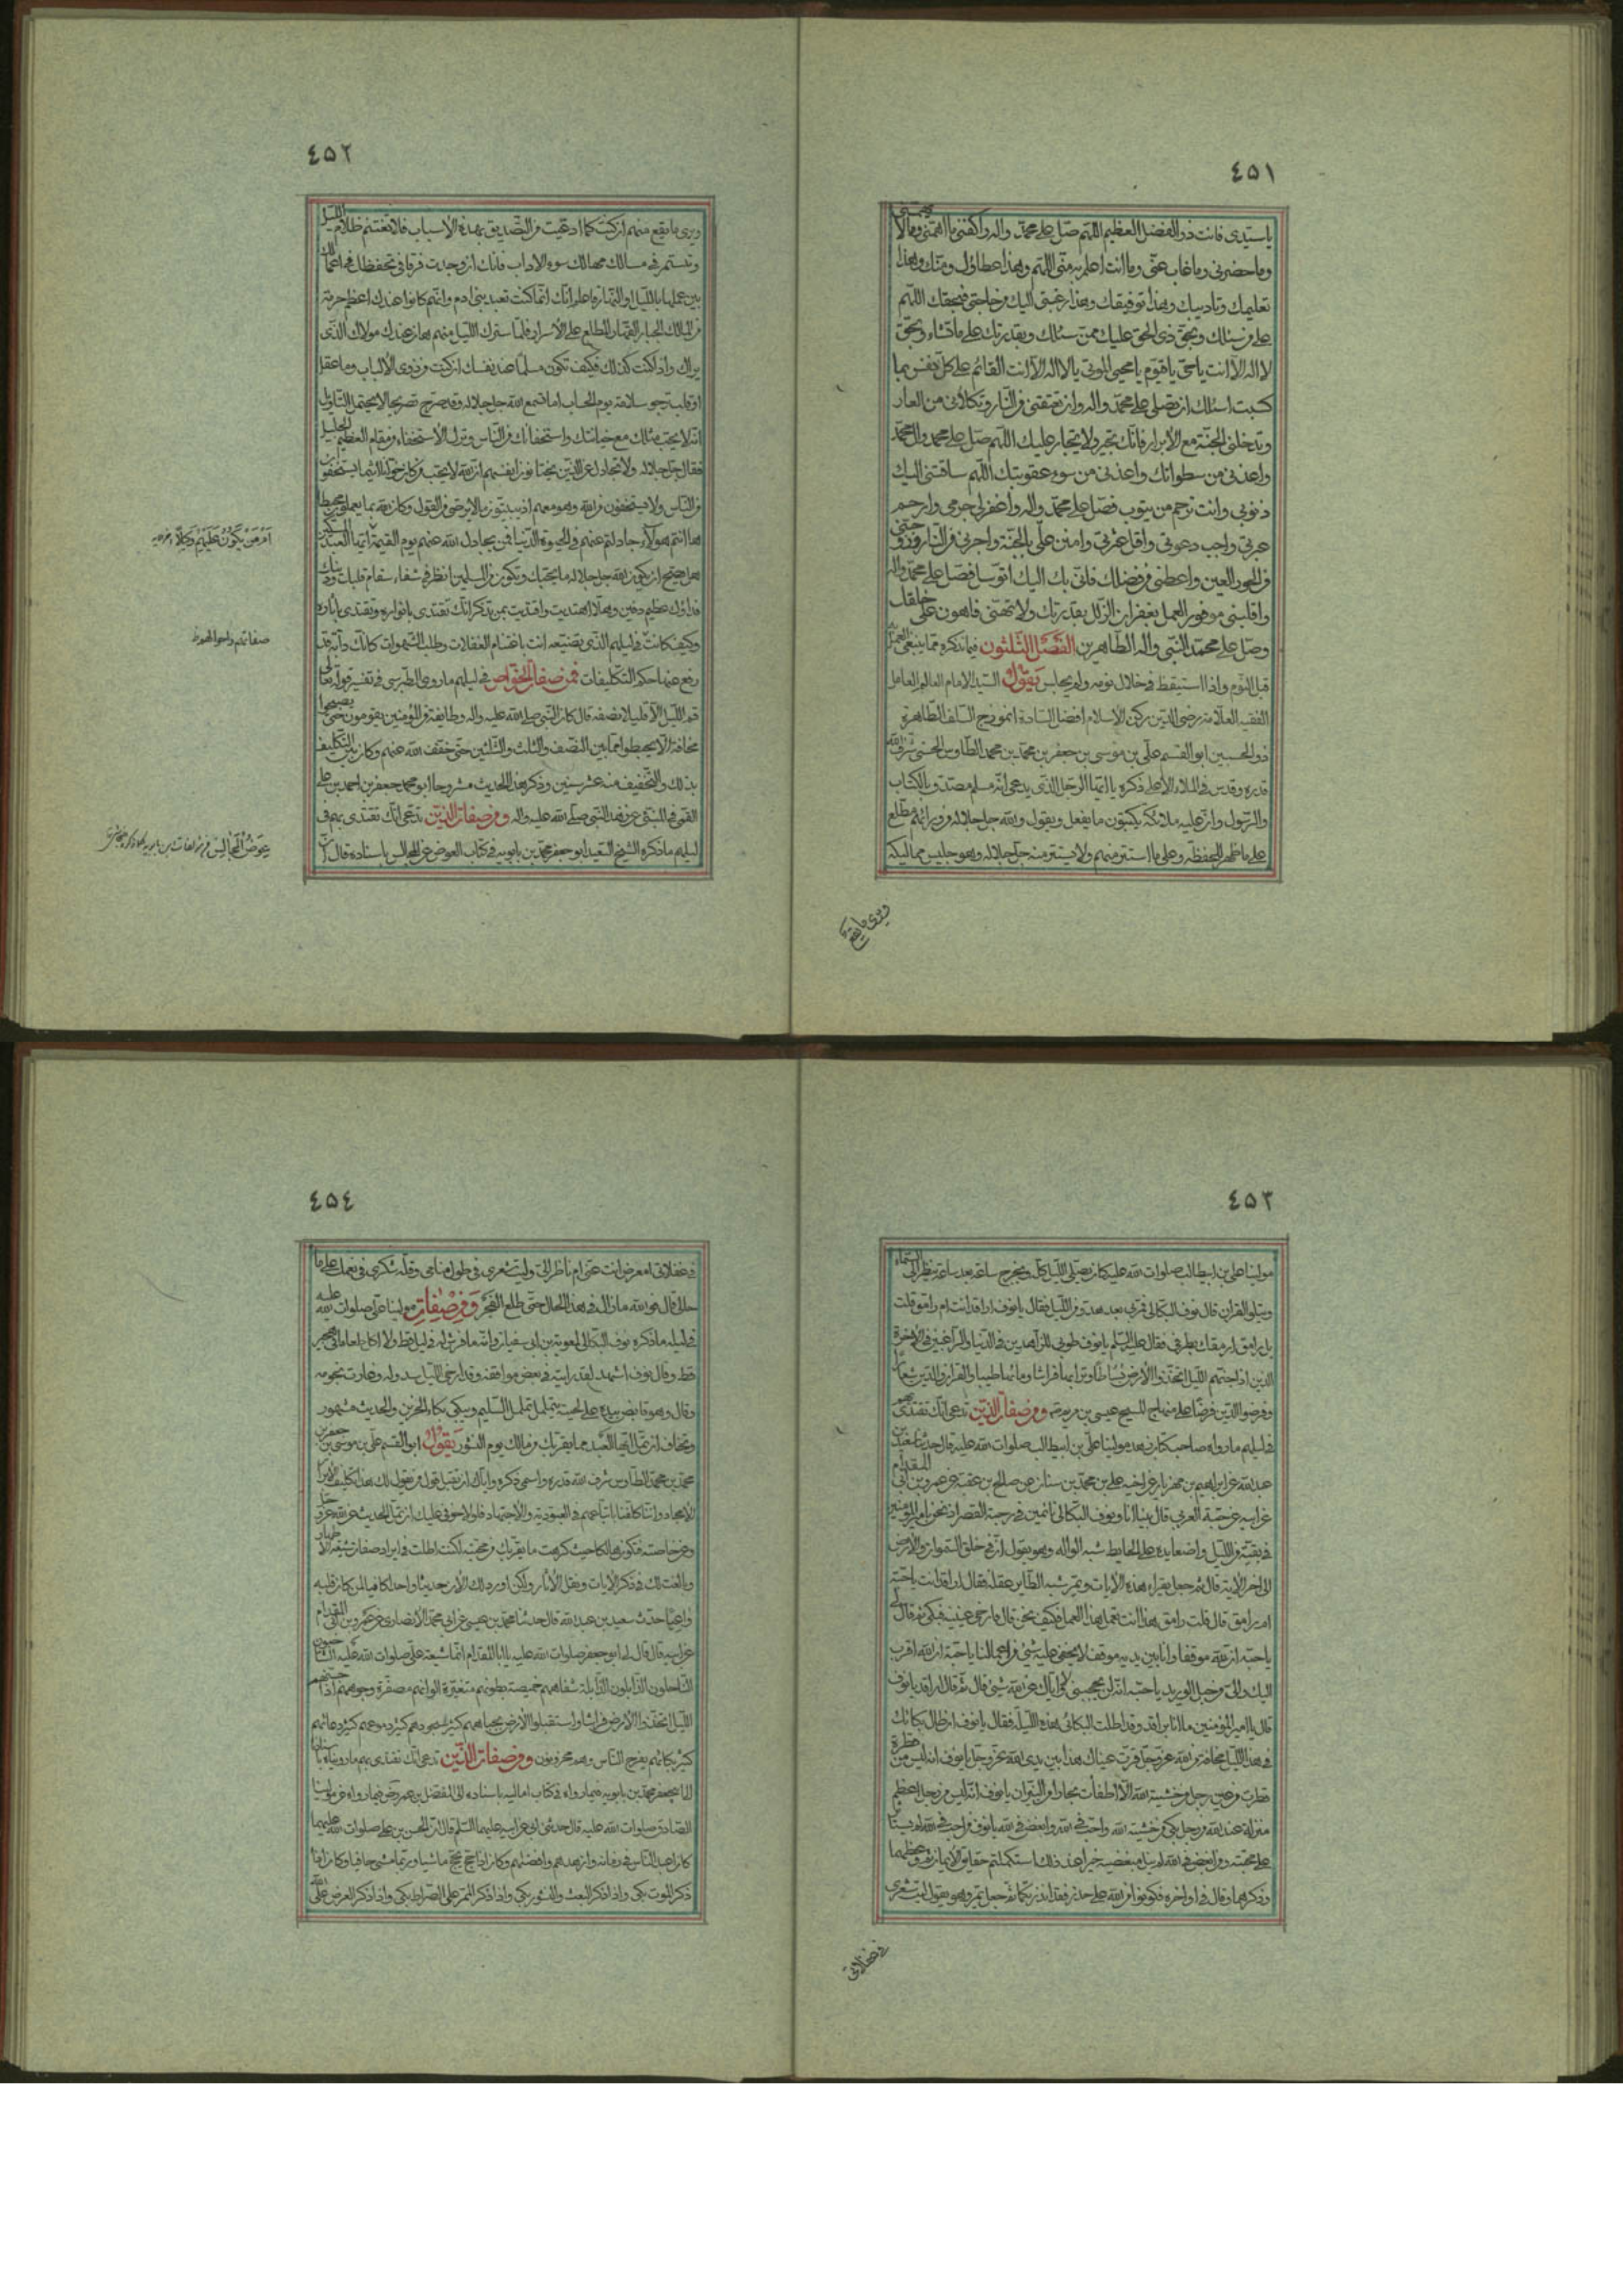 ٤٥١
يا سيدى فانت ذو الفضل العظيم اللهم صل على محمد واله واكفنى ما اهمنى وما لا يهمنى
وما حضرنى وما غاب عنى وما انت اعلم به منى اللهم وهذا عطاؤك ومنك وهذا
تعليمك وتاديبك وهذا توفيقك وهذا رغبتى اليك من حاجتى فبحقك اللهم
على من سئلك وبحق ذى الحق عليك ممن سئلك وبقدرتك على ما تشاء وبحق
لا اله الا انت ياحى ياقيوم يا محيى الموتى يا لا اله الا انت القائم على كل نفس بما
كسبت اسئلك ان تصلى على محمد واله وان تعتقنى من النار وتكلأنى من العار
وتدخلنى الجنة مع الابرار فانك تجير ولا يجار عليك اللهم صل على محمد وال محمد
واعذنى من سطواتك واعذنى من سوء عقوبتك اللهم ساقتنى اليك
ذنوبى وانت ترحم من يتوب فصل على محمد واله واغفر لى جرمى وارحم
عبرتى واجب دعوتى واقل عثرتى وامنن على بالجنة واجرنى من النار وزوجنى
من الحور العين واعطنى من فضلك فانى بك اليك اتوسل فصل على محمد واله
واقلبنى موفور العمل بغفران الزلل بقدرتك ولا تهنى فاهون على خلقك
وصل على محمد النبى واله الطاهرين الفصل الثلثون فيما نذكره مما ينبغى العمل به
قبل النوم واذا استيقظ فى خلال نومه ولم يجلس يقول السيد الامام العالم العامل
الفقيه العلامة رضى الدين ركن الاسلام افضل السادة انموذج السلف الطاهرة
ذو الحسبين ابو القسم على بن موسى بن جعفر بن محمد بن محمد الطاوس الحسنى شرف الله
قدره وقدس فى الملاء الاعلى ذكره يا ايها الرجل الذى يدعى انه مسلم مصدق بالكتاب
والرسول وان عليه ملائكة يكتبون ما يفعل ويقول والله جل جلاله من ورائهم مطلع
على ما ظهر للحفظة وعلى ما استتر منهم ولا يستتر منه جل جلاله وهو جليس مماليكه
ويرى ما يقع
٤٥٢
ويرى ما يقع منهم ان كنت كما ادعيت من التصديق بهذه الاسباب فلا تغتنم ظلام الليل
وتستمر فى مسالك مهالك سوء الاداب فانك ان وجدت فرقا فى تحفظك فى اعمالك
بين عملها بالليل او النهار فاعلم انك انما كنت تعبد بنى ادم وانهم كانوا عندك اعظم حرمة
من المالك الجبار القهار المطلع على الاسرار فلما سترك الليل منهم هان عندك مولاك الذى
يراك واذا كنت كذلك فكيف تكون مسلما عند نفسك ان كنت من ذوى الالباب وما عقل
او قلب ترجو سلامة يوم الحساب اما تسمع الله جل جلاله وقد صرح تصريحا لا يحتمل التاويل
انه لا يحب مثلك مع خيانتك واستخفائك من الناس وترك الاستخفاء من مقام العظيم الجليل
فقال جل جلاله ولا تجادل عن الذين يختانون انفسهم ان الله لا يحب من كان خوانا اثيما يستخفون
من الناس ولا يستخفون من الله وهو معهم اذ يبيتون ما لا يرضى من القول وكان الله بما يعملون محيطا
ها انتم هولاء جادلتم عنهم فى الحيوة الدنيا فمن يجادل الله عنهم يوم القيمة ايها العبد المسكين
هل يصح ان يكون الله جل جلاله ما يحبك وتكون من المسلمين انظر فى شفاء سقام قلبك ودينك
فداؤك عظيم دفين وهلا اهتديت واقتديت بمن تذكر انك تقتدى بانواره وتقتدى باثاره
وكيف كانت ليلهم الذى تضيعه انت باغتنام الغفلات وطلب الشهوات كانك دابة قد
رفع عنها حكم التكليفات فمن صفات الخواص فى ليلهم ما روى الطبرسى فى تفسير قوله تعالى
قم الليل الا قليلا نصفه قال كان النبى صلى الله عليه واله وطايفة من المؤمنين يقومون حتى يصبحوا
مخافة الا يحيطوا بما بين النصف والثلث والثلثين حتى خفف الله عنهم وكان بين التكليف
بذلك والتخفيف منه عشر سنين وذكر هذا الحديث مشروحا ابو محمد جعفر بن احمد بن على
القمى فى المنبئى عن زهد النبى صلى الله عليه واله ومن صفات الذين تدعى انك تقتدى بهم فى
ليلهم ما ذكره الشيخ السعيد ابو جعفر محمد بن بابويه فى كتاب العوض عن المجالس باسناده قال ان
ام من يكون عليهم وكيلا
صفاتهم واحوالهم
عوض المجالس من مؤلفات ابن بابويه
٤٥٣
مولينا على بن ابيطالب صلوات الله عليه كان يصلى الليل كله ويخرج ساعة بعد ساعة ينظر الى السماء
ويتلو القران قال نوف البكالى فمر بى بعد هدوء من الليل فقال يا نوف اراقد انت ام رامق قلت
بل رامق ارمقك بطرفى فقال عليه السلم يا نوف طوبى للزاهدين فى الدنيا والراغبين فى الاخرة
الذين اذ اجنهم الليل اتخذوا الارض بساطا وترابها فراشا وماءها طيبا والقران والدين شعارا
وقرضوا الدين قرضا على منهاج المسيح عيسى بن مريم ومن صفات الذين تدعى انك تقتدى بهم
فى ليلهم ما رواه صاحب كتاب زهد مولينا على بن ابيطالب صلوات الله عليه قال حدثنا سعيد بن
عبد الله عن ابراهيم بن مهزيار عن اخيه على عن محمد بن سنان عن صالح بن عقبة عن عمرو بن ابى المقدام
عن ابيه عن حبة العرنى قال بينا انا ونوف البكالى نائمين فى رحبة القصر اذ نحن بامير المؤمنين
فى بقية من الليل واضعا يده على الحايط شبه الواله وهو يقول ان فى خلق السموات والارض
الى اخر الاية قال ثم جعل يقراء هذه الايات ويمر شبه الطاير عقله فقال اراقد انت يا حبة
ام رامق قال قلت رامق هذا انت تعمل هذا العمل فكيف نحن قال فارخى عينيه فبكى ثم قال لى
يا حبة ان لله موقفا وانا بين يديه موقف لا يخفى عليه شئ من اعمالنا يا حبة ان الله اقرب
اليك والى من حبل الوريد يا حبة انه لن يحجبنى ولا اياك عن الله شئ قال ثم قال اراقد يا نوف
قال يا امير المؤمنين ما انا براقد وقد اطلت البكائى هذه الليلة فقال يا نوف ان طال بكائك
فى هذا الليل مخافة من الله عز وجل قرت عيناك غدا بين يدى الله عز وجل يا نوف انه ليس من قطرة
قطرت من عين رجل من خشية الله الا اطفأت بحارا من النيران يا نوف انه ليس من رجل اعظم
منزلة عند الله من رجل بكى من خشية الله واحب فى الله وابغض فى الله يا نوف من احب فى الله لم يستاثر
على محبته ومن ابغض فى الله لم ينل مبغضيه خيرا عند ذلك استكملتم حقايق الايمان ثم وعظهما
وذكرهما وقال فى اواخره فكونوا من الله على حذر فقد انذرتكما ثم جعل يمر وهو يقول ليت شعرى
فى غفلاتى
٤٥٤
فى غفلاتى امعرض انت عنى ام ناظر الى وليت شعرى فى طول منامى وقلة شكرى فى نعمك على ما
حالى قال فوالله ما زال فى هذا الحال حتى طلع الفجر ومن صفات مولينا على صلوات الله عليه
فى ليله ما ذكره نوف البكالى لمعوية بن ابى سفيان وانه ما فرش له فى ليل قط ولا اكل طعاما فى هجير
قط وقال نوف اشهد لقد رايته فى بعض مواقفه وقد ارخى الليل سدوله وغارت نجومه
وقال وهو قابض بيده على لحيته يتململ تململ السليم ويبكى بكاء الحزين والحديث مشهور
وتخاف ان تمل ايها العبد مما يقربك من مالك يوم النشور يقول ابو القسم على بن موسى بن جعفر بن
محمد بن محمد الطاوس شرف الله قدره واسمى ذكره واياك ان تقبل قول من يقول لك هذا تكليف الابرار
الامجاد وانما كلفنا باتباعهم فى العبودية والاجتهاد فلولا خوفى عليك ان تمل الحديث عن الله عز وجل
وعن خاصته فتكون هالكا حيث كرهت ما يقربك من محبته لكنت اطلت فى ايراد صفات شيعة الاطهار
وبالغت لك فى ذكر الايات ونقل الاثار ولكن اورد لك الان حديثا واحدا كافيا لمن كان قلبه
واعيا حدث سعيد بن عبد الله قال حدثنا محمد بن عيسى عن ابى محمد الانصارى عن عمرو بن ابى المقدام
عن ابيه قال قال لى ابو جعفر صلوات الله عليه يا ابا المقدام انما شيعة على صلوات الله عليه الشاحبون
الناحلون الذابلون الذابلة شفاههم خميصة بطونهم متغيرة الوانهم مصفرة وجوههم اذا جنهم
الليل اتخذوا الارض فراشا واستقبلوا الارض بجباههم كثير سجودهم كثيرة دموعهم كثير دعائهم
كثير بكائهم يفرح الناس وهم محزونون ومن صفات الذين تدعى انك تقتدى بهم ما رويناه باسنادنا
الى ابى جعفر محمد بن بابويه فيما رواه فى كتاب اماليه باسناده الى المفضل بن عمر رض فيما رواه عن مولينا
الصادق صلوات الله عليه قال حدثنى ابى عن ابيه عليهما السلم قال ان الحسن بن على صلوات الله عليهما
كان اعبد الناس فى زمانه وازهدهم وافضلهم وكان اذا حج حج ماشيا وربما مشى حافيا وكان اذا
ذكر الموت بكى واذا ذكر البعث والنشور بكى واذا ذكر الممر على الصراط بكى واذا ذكر العرض على الله